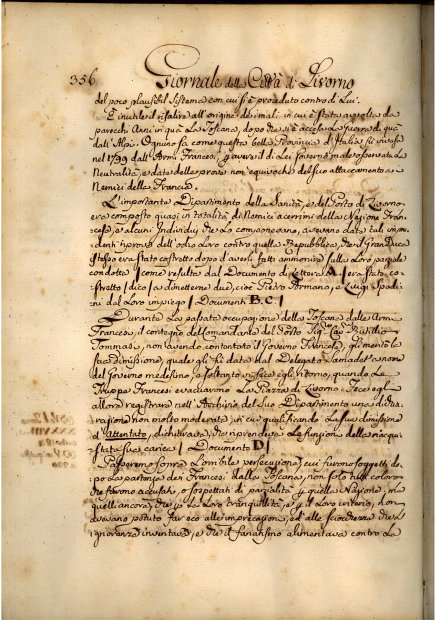 356 Giornale della Città di Livorno
del poco plausibil sistema con cui si è proceduto contro di Lui.
È inutile il risalire all'origine dei mali, in cui è stata avvolta da
parecchi Anni in quà La Toscana, dopo che si è accesa La Guerra di quà
dall'Alpi. Ognuno sà come questa bella Provincia d'Italia fù invasa
nel 1799 dall'Armi Francesi, p avere il di Lei Governo male osservata La
Neutralità, e date delle prove non equivoche del suo attaccamento ai
Nemici della Francia.
L'importante Dipartimento della Sanità, e del Porto di Livorno
era composto quasi in totalità di Nemici acerrimi della Nazione Fran
cese, e alcuni Individuj che Lo componevano, avevano date tali im
prudenti riprove dell'odio Loro contro quella Repubblica, che il Gran Duca
stesso era stato costretto dopo d'averli fatti ammonire sulla Loro parziale
condotta / come resulta dal Documento di Lettera A. / era stato co
stretto / dico / a dimetterne due, cioè Pietro Pormano, e Luigi Spadi
ni dal Loro impiego / Documenti B.C. /
Durante La passata occupazione della Toscana dalle Armi
Francesi, il contegno del Comandante del Porto Sig.re Willi
Tommasi, non avendo contentato il Governo Francese, gli meritò la
sua dimissione, quale gli fù data dal Delegato a nome
del Governo medesimo, e soltanto visse egli ritirato, quando Le
Truppe Francesi evacuarono La Piazza di Livorno. Fece egli
allora registrare nell'Archivio del suo Dipartimento una dichia
razione non molto moderata, in cui qualificando La sua dimissione
d'Attentato, dichiarava, che riprendeva Le funzioni della mai acqui
stata sua carica / Documento D. /
Passeremo sopra L'orribile persecuzione, cui furono soggetti, do
po La partenza dei Francesi dalla Toscana, non solo tutti coloro
che furono accusati, o sospettati di parzialità p quella Nazione, ma
quelli ancora, che p La Loro tranquillità, e p il Loro criterio, non
avevano potuto far eco alle imprecazioni, ed alle sciocchezze che L'
ignoranza inventava, e che il fanatismo alimentava contro La